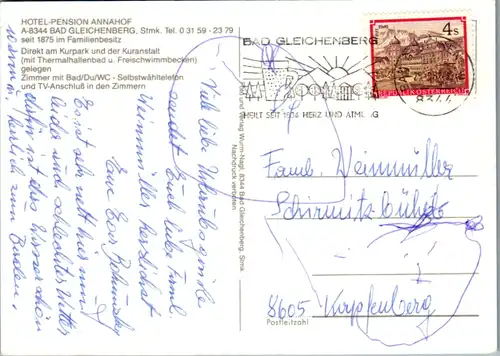 HOTEL-PENSION ANNAHOF
A-8344 BAD GLEICHENBERG, Stmk. Tel. 0 31 59 - 23 79
seit 1875 im Familienbesitz
Direkt am Kurpark und der Kuranstalt
(mit Thermalhallenbad u. Freischwimmbecken)
gelegen
Zimmer mit Bad/Du/WC - Selbstwähltelefon
und TV-Anschluß in den Zimmern
BAD GLEICHENBERG
HEILT SEIT 1834 HERZ UND ATMUNG
8344
4s
REPUBLIK ÖSTERREICH
Viele liebe Urlaubsgrüße
sendet Euch liebe Faml.
Weinmüller herzlichst
Eure
Es ist sehr nett hier nur
leider auch schlechtes Wetter
dafür ist das Wasser schön
warm u. herrlich zum Baden.
Foto und Verlag Wurm-Nagl, 8344 Bad Gleichenberg, Stmk.
Nachdruck verboten
Faml. Weinmüller
8605 Kapfenberg
Postleitzahl